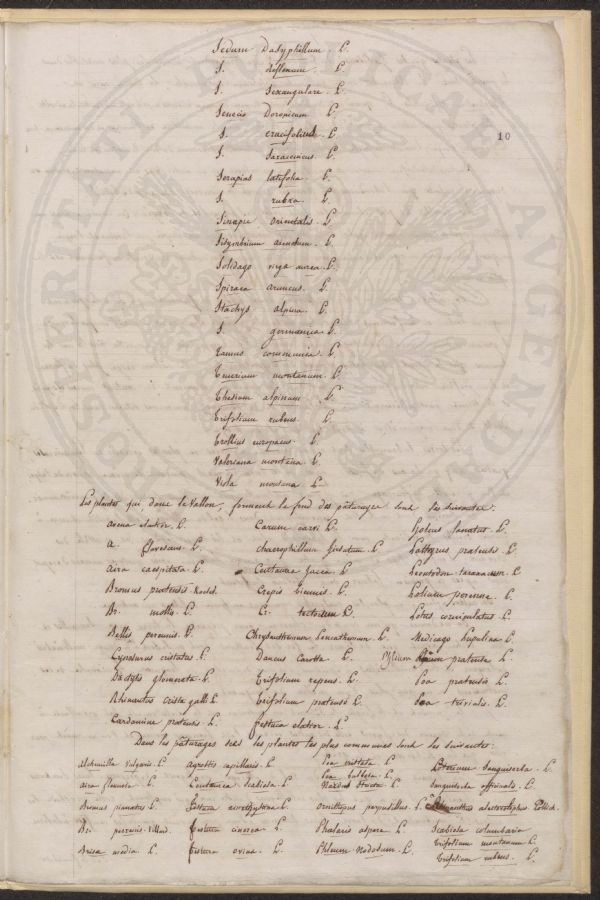 Sedum Dasyphillum. L.
S. reflexum. L.
S. Sexangulare. L.
10
Senecio Doronicum. L.
S. erucifolius. L.
S. Saracenicus. L.
Serapias latifolia. L.
S. rubra. L.
Sinapis orientalis. L.
Sisymbrium arenosum. L.
Solidago virga aurea. L.
Spiraea aruncus. L.
Stachys alpina. L.
S. germanica. L.
Tamus communis. L.
Teucrium montanum. L.
Thesium alpinum. L.
Trifolium rubens. L.
Trollius europaeus. L.
Valeriana montana. L.
Viola montana L.
Les plantes qui, dans le Vallon, forment le fond des pâturages sont les suivantes:
Avena elatior. L. Carum carvi L. Holcus lanatus. L.
A. flavescens. L. Chaerophillum hirsutum. L. Lathyrus pratensis. L.
Aira caespitosa. L. Centaurea Jacea. L. Leontodon taraxacum. L
Bromus pratensis Koeld. Crepis biennis. L. Lolium perenne. L.
Br. mollis. L. Cr. tectorum L. Lotus corniculatus. L.
Bellis perennis. L. Chrysanthemum Leucanthemum. L. Medicago lupulina L.
Cynosurus cristatus. L. Daucus Carotta. L. Phleum pratense L.
Dactylis glomerata. L. Trifolium repens. L. Poa pratensis L.
Rhinantus Crista galli L. Trifolium pratense L. Poa trivialis. L.
Cardamine pratensis. L. festuca elatior. L.
Dans les pâturages secs les plantes les plus communes sont les suivantes:
Alchimilla vulgaris. L. Agrostis capillaris. L. Poa cristata. L. Poterium Sanguisorba. L.
Poa bulbosa. L.
Aira flexuosa. L. Centaurea Scabiosa. L. Nardus stricta. L. Sanguisorba officinalis. L.
Bromus pinnatus L. Festuca L. Ornithopus perpusillus. L. alectorolophus Pollich.
Br. Villars. Festuca L. Phalaris aspera. L. Scabiosa columbaria
Trifolium montanum L.
Briza media. L. Festuca ovina. L. Phleum Nodosum. L. Trifolium rubens. L.